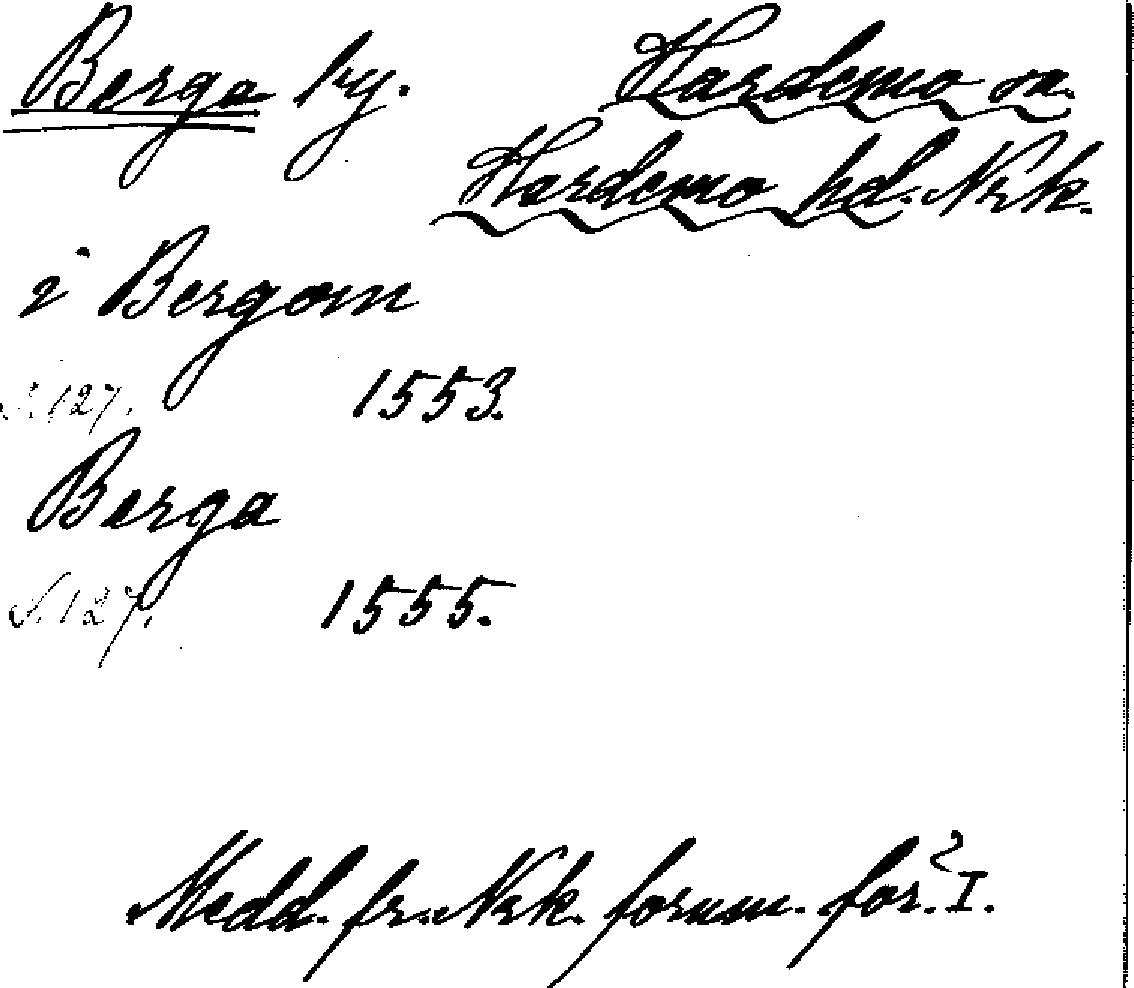 Berga by. Hardemo sn.
Hardemo hd. Nrk.
i Bergom
S. 127. 1553.
Berga
S. 127. 1555.
Medd. fr. Nrk. fornm. för. I.